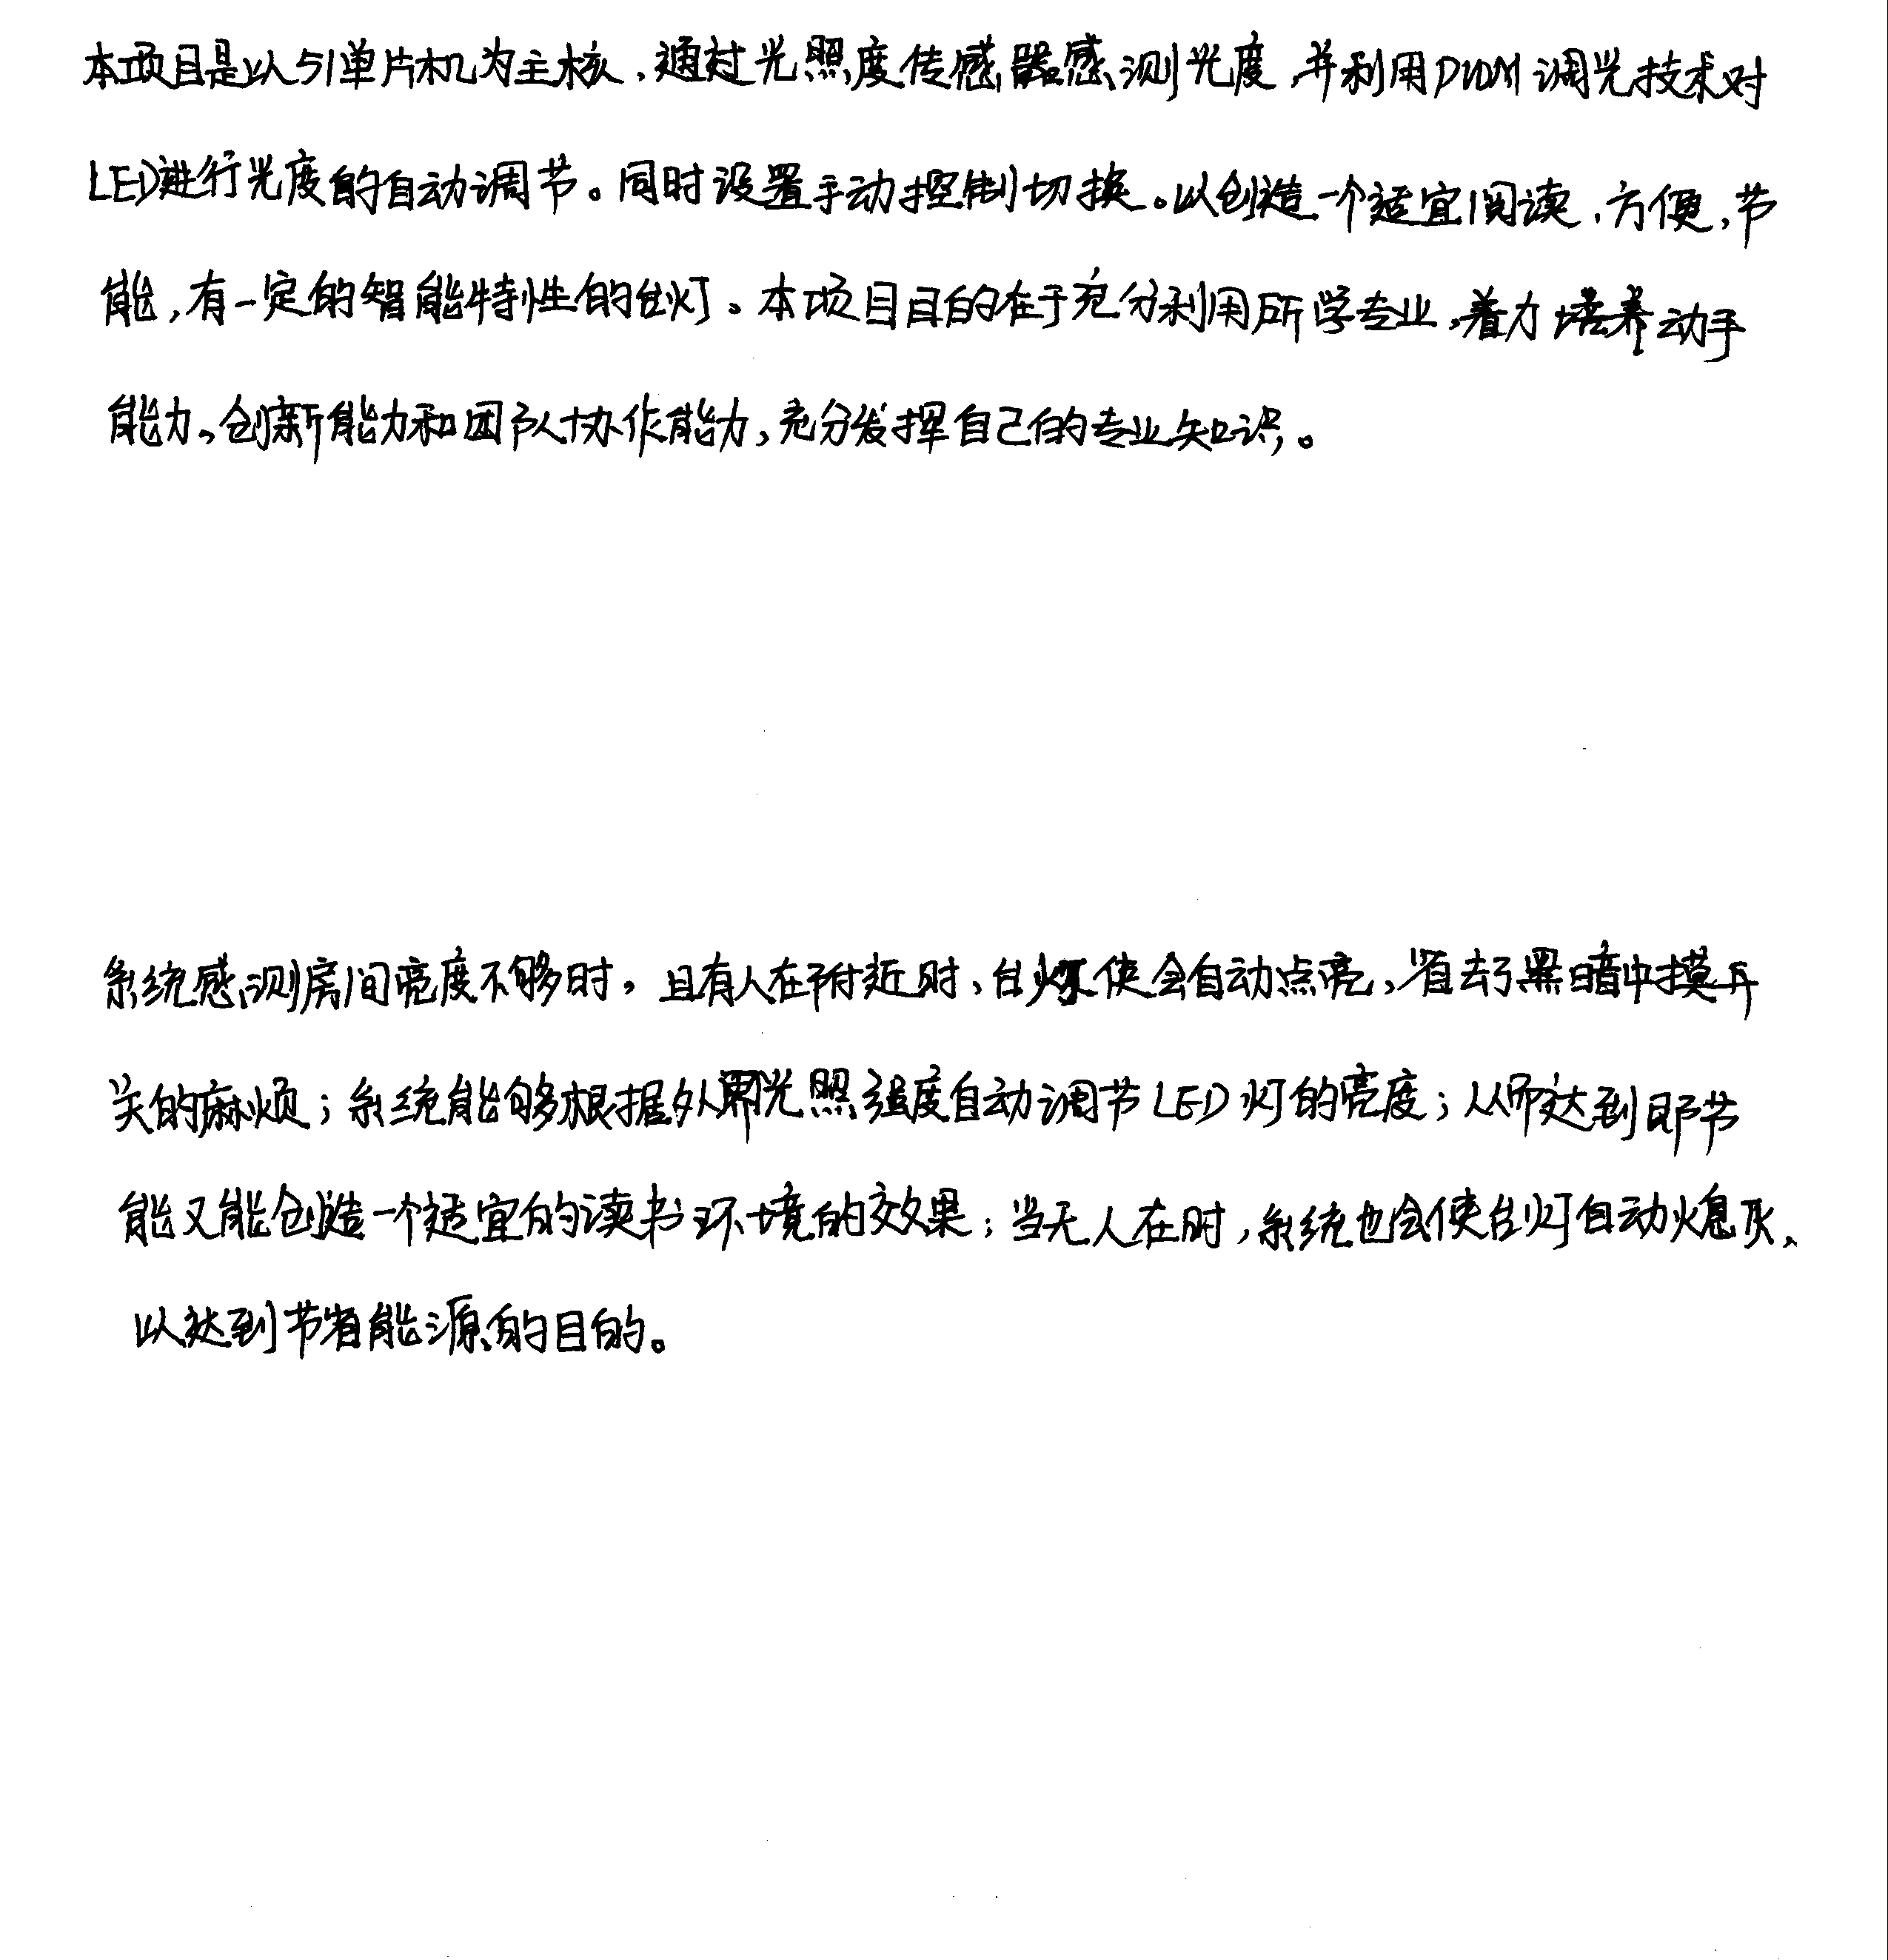 本项目是以51单片机为主核，通过光照度传感器感测光度，并利用PWM调光技术对
LED进行光度的自动调节。同时设置手动控制切换。以创造一个适宜阅读、方便，节
能，有一定的智能特性的台灯。本项目目的在于充分利用所学专业，着力培养动手
能力、创新能力和团队协作能力，充分发挥自己的专业知识。
系统感测房间亮度不够时，且有人在附近时、台灯便会自动点亮，省去了黑暗中摸开
关的麻烦；系统能够根据外界光照强度自动调节LED灯的亮度；从而达到即节
能又能创造一个适宜的读书环境的效果；当无人在时，系统也会使台灯自动熄灭、
以达到节省能源的目的。